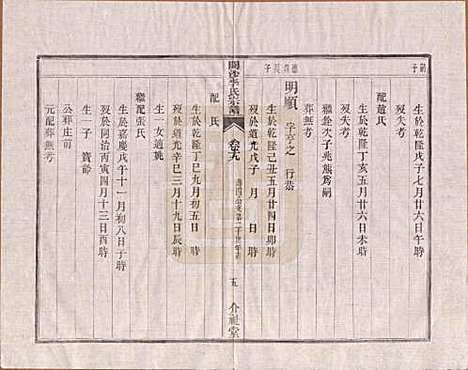 嗣子
生於乾隆戊子七月廿六日午時
歿失考
配趙氏
生於乾隆丁亥五月廿六日未時
歿失考
繼銓次子兆熊為嗣
葬無考
德貴長子
明順 字亭之 行恭
生於乾隆己丑五月廿四日卯時
歿於道光戊子 月 日 時
李氏宗譜
卷五九
五
介祉堂
配 氏
生於乾隆丁巳九月初五日 時
歿於道光辛巳三月十九日辰時
生一女適姚
繼配張氏
生於嘉慶戊午十一月初八日子時
歿於同治丙寅四月十三日酉時
生一子 寶齡
公葬庄前
元配葬無考